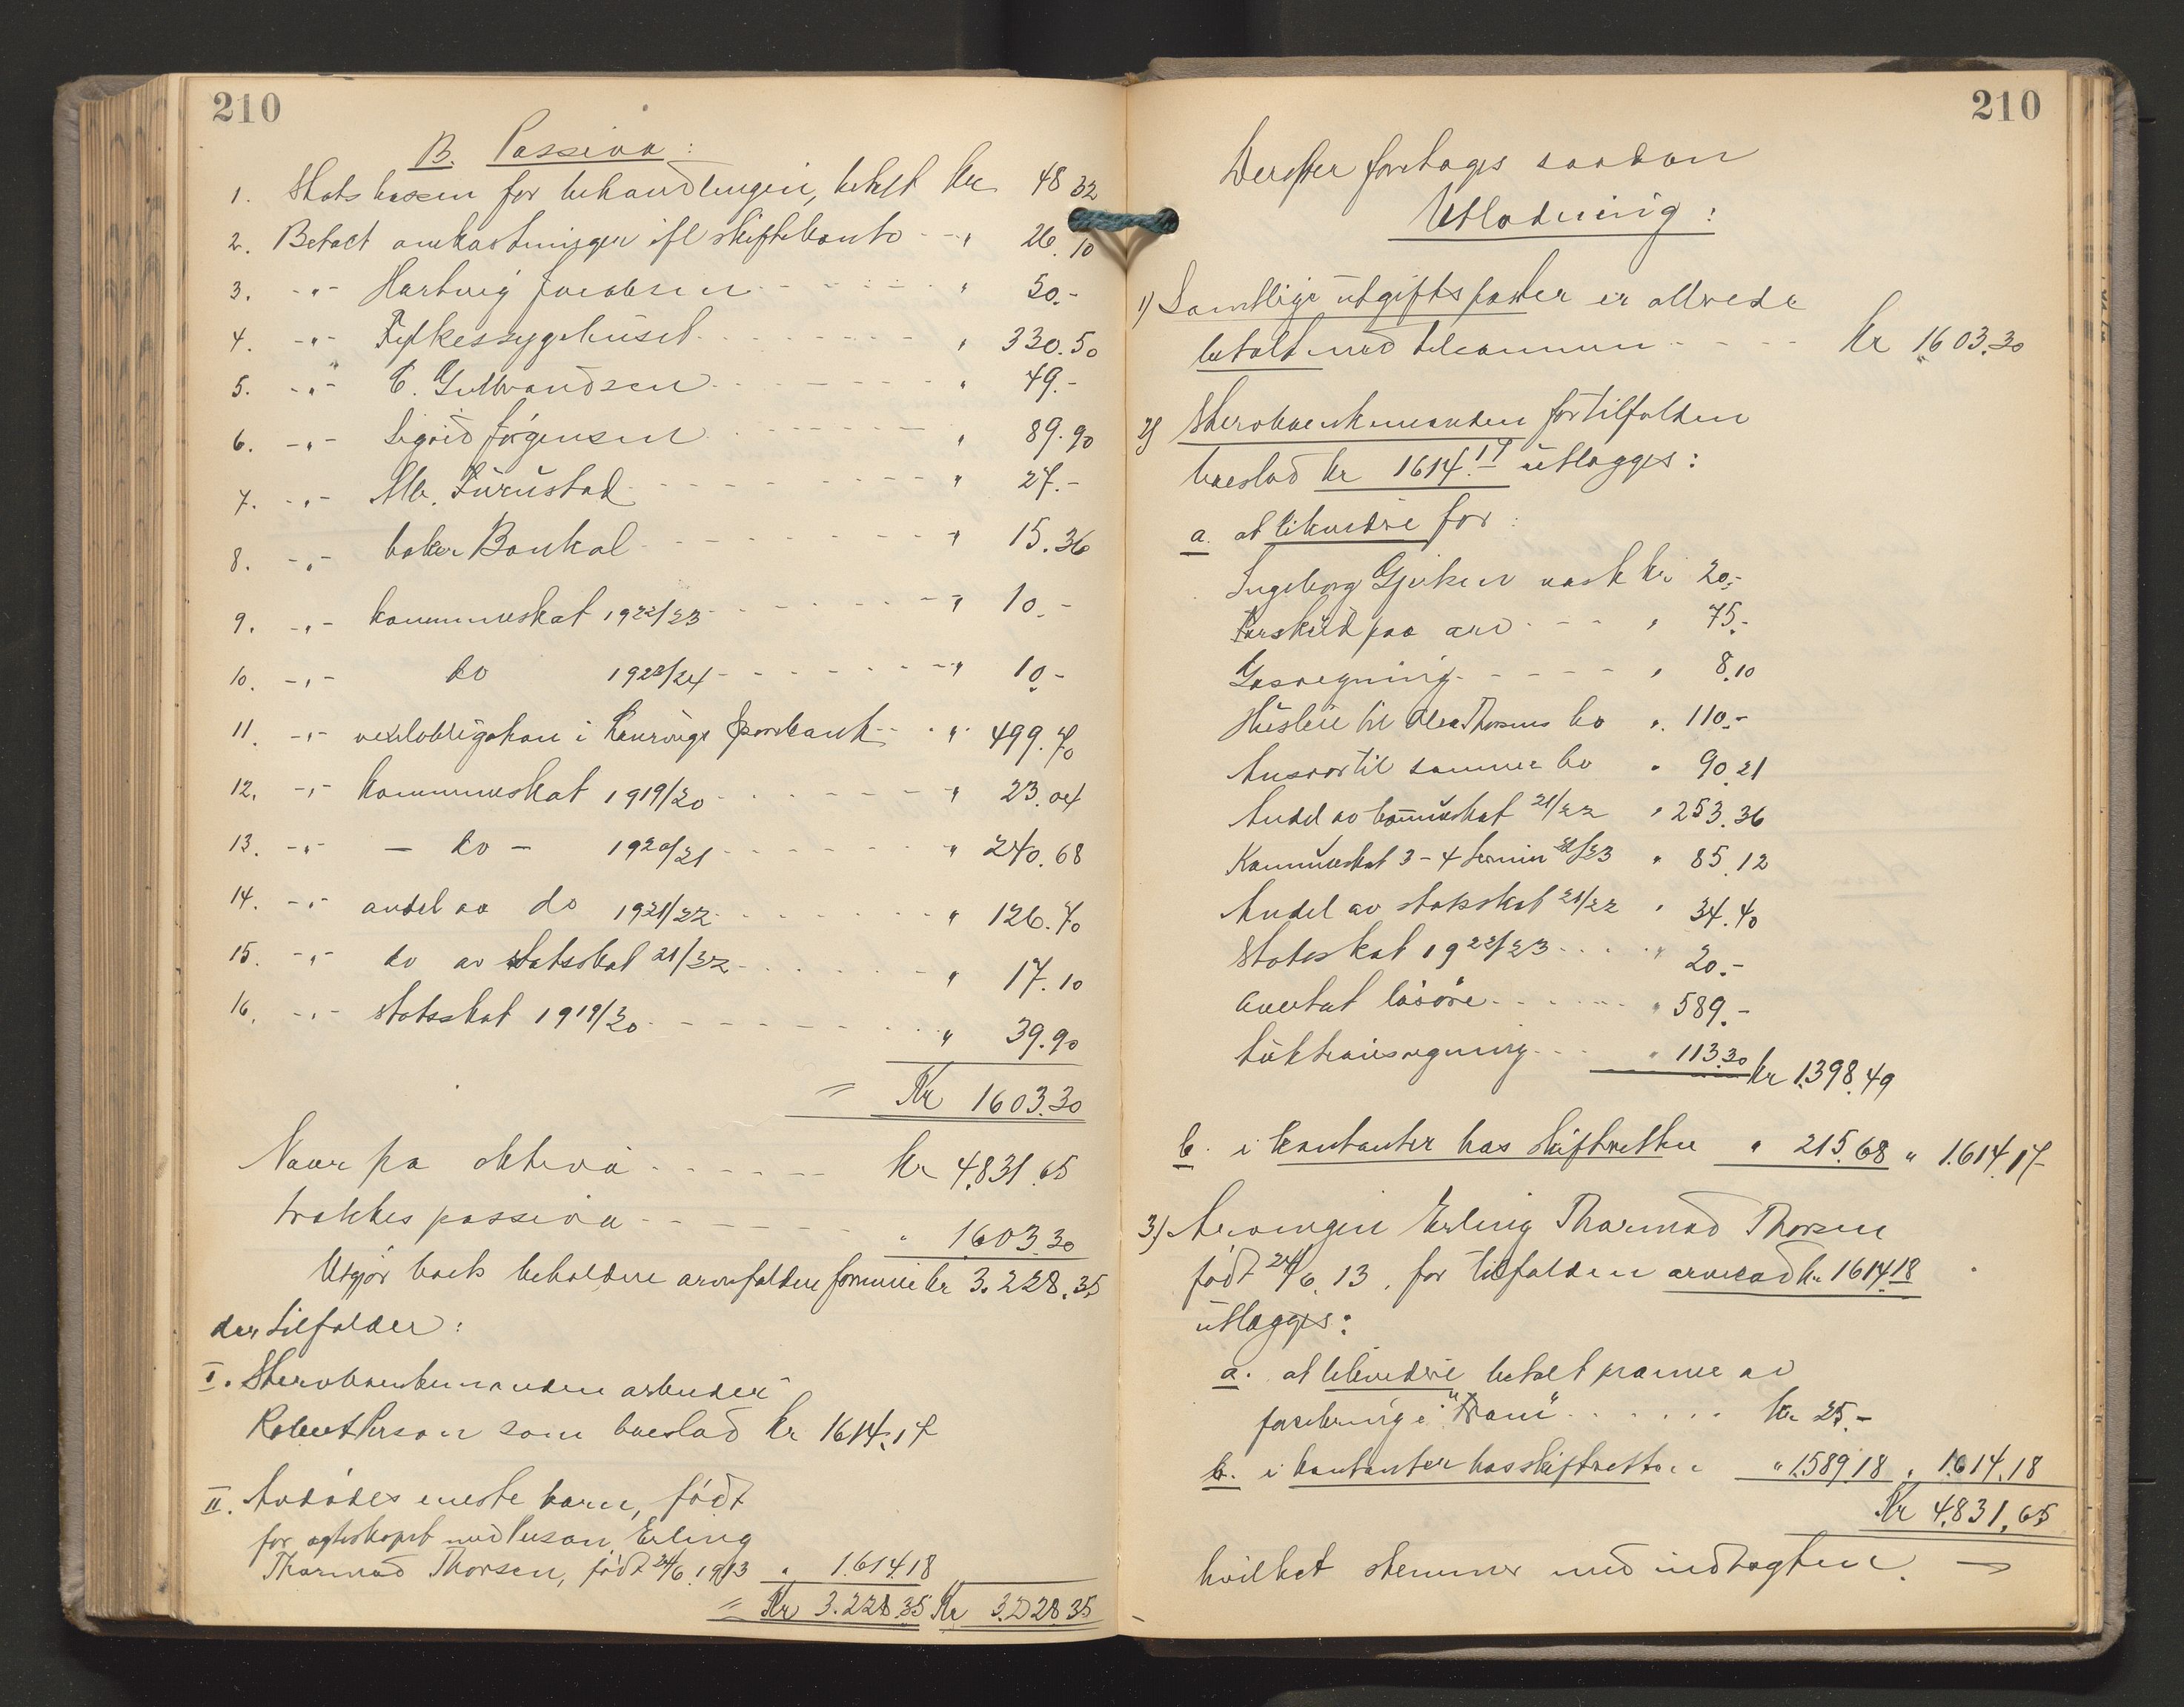 210
B. Passiva:
1. Statskassen for behandlingen, betalt kr 48 32
2. Betalt omkostninger ifl skiftekonto - - " 26.10
3. -"- Hartvig Jacobsen - - - " 50.-
4. -"- Fylkessygehuset - - - " 330.50
5. -"- C. Gulbrandsen - - - " 49.-
6. -"- Sigrid Jørgensen - - - " 89.90
7. -"- Alb. Furustad - - - " 27.-
8. -"- baker Bonkal - - - " 15.36
9. -"- kommuneskat 1922/23 - - - " 10.-
10. -"- do 1923/24 - - - " 10.-
11. -"- vexelobligation i sparebank - - " 499.70
12. -"- kommuneskat 1919/20 - - - " 23.04
13. -"- - do - 1920/21 - - - " 240.68
14. -"- andel av do 1921/22 - - - " 126.70
15. -"- do av statsskat 21/22 - - - " 17.10
16. -"- statsskat 1919/20 - - - " 39.90
= Kr 1603.30
Naar fra aktiva - - - kr 4.831.65
trækkes passiva - - - " 1.603.30
Utgjør boets beholdne arvefaldne formue kr 3.228.35
der tilfalder:
I. Sterboenkemanden arbeider
Robert Person som boeslod kr 1614.17
II. Avdødes eneste barn, født
før egteskapet med Person, Erling
Thormod Thorsen, født 24/6 1913 " 1.614.18
= Kr 3.228.35 Kr 3.228.35
210
Derefter foretages saadan
Utlodning:
1) Samtlige utgiftsposter er allerede
betalt med tilsammen - - - - kr 1603.30
2) Sterboenkemanden for tilfalden
boeslod kr 1614.17 utlægges:
a. at likvidere for:
Ingeborg Gjerken vask kr 20.-
Forskud paa arv - - - " 75.-
Gasregning - - - " 8.10
Husleie til Olea Thorsens bo " 110.-
Ansvar til samme bo " 90.21
Andel av kommuneskat 21/22 " 253.36
Kommuneskat 3-4 termin 22/23 " 85.12
Andel av statsskat 21/22 " 34.40
Statsskat 1922/23 . . . . " 20.-
overtat løsøre - - - " 589.-
auktionsregning - - - " 113.30 kr 1.398.49
b. i kontanter hos skifteretten " 215.68 " 1.614.17
3) Arvingen Erling Thormod Thorsen
født 24/6 13, for tilfalden arvelod kr 1614.18
utlægges:
a. at likvidere betalt præmie av
forsikring i "Fram" . . . . . kr 25.-
b. i kontanter hos skifteretten " 1.589.18 " 1.614.18
Kr 4.831.65
hvilket stemmer med indtægten.